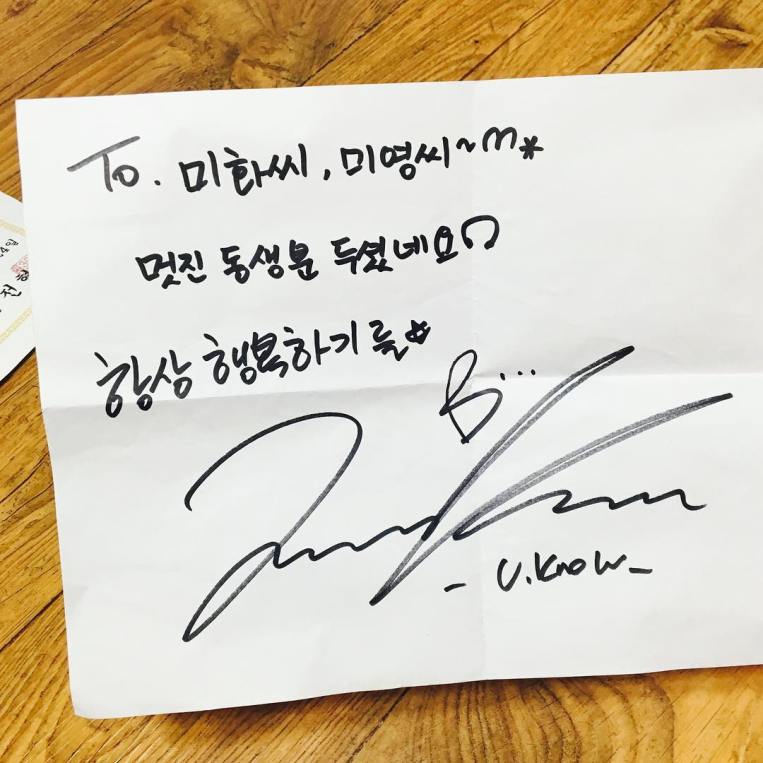 To. 미화씨, 미영씨~m*
멋진 동생분 두셨네요
항상 행복하기를☆
B...
- U.Know -